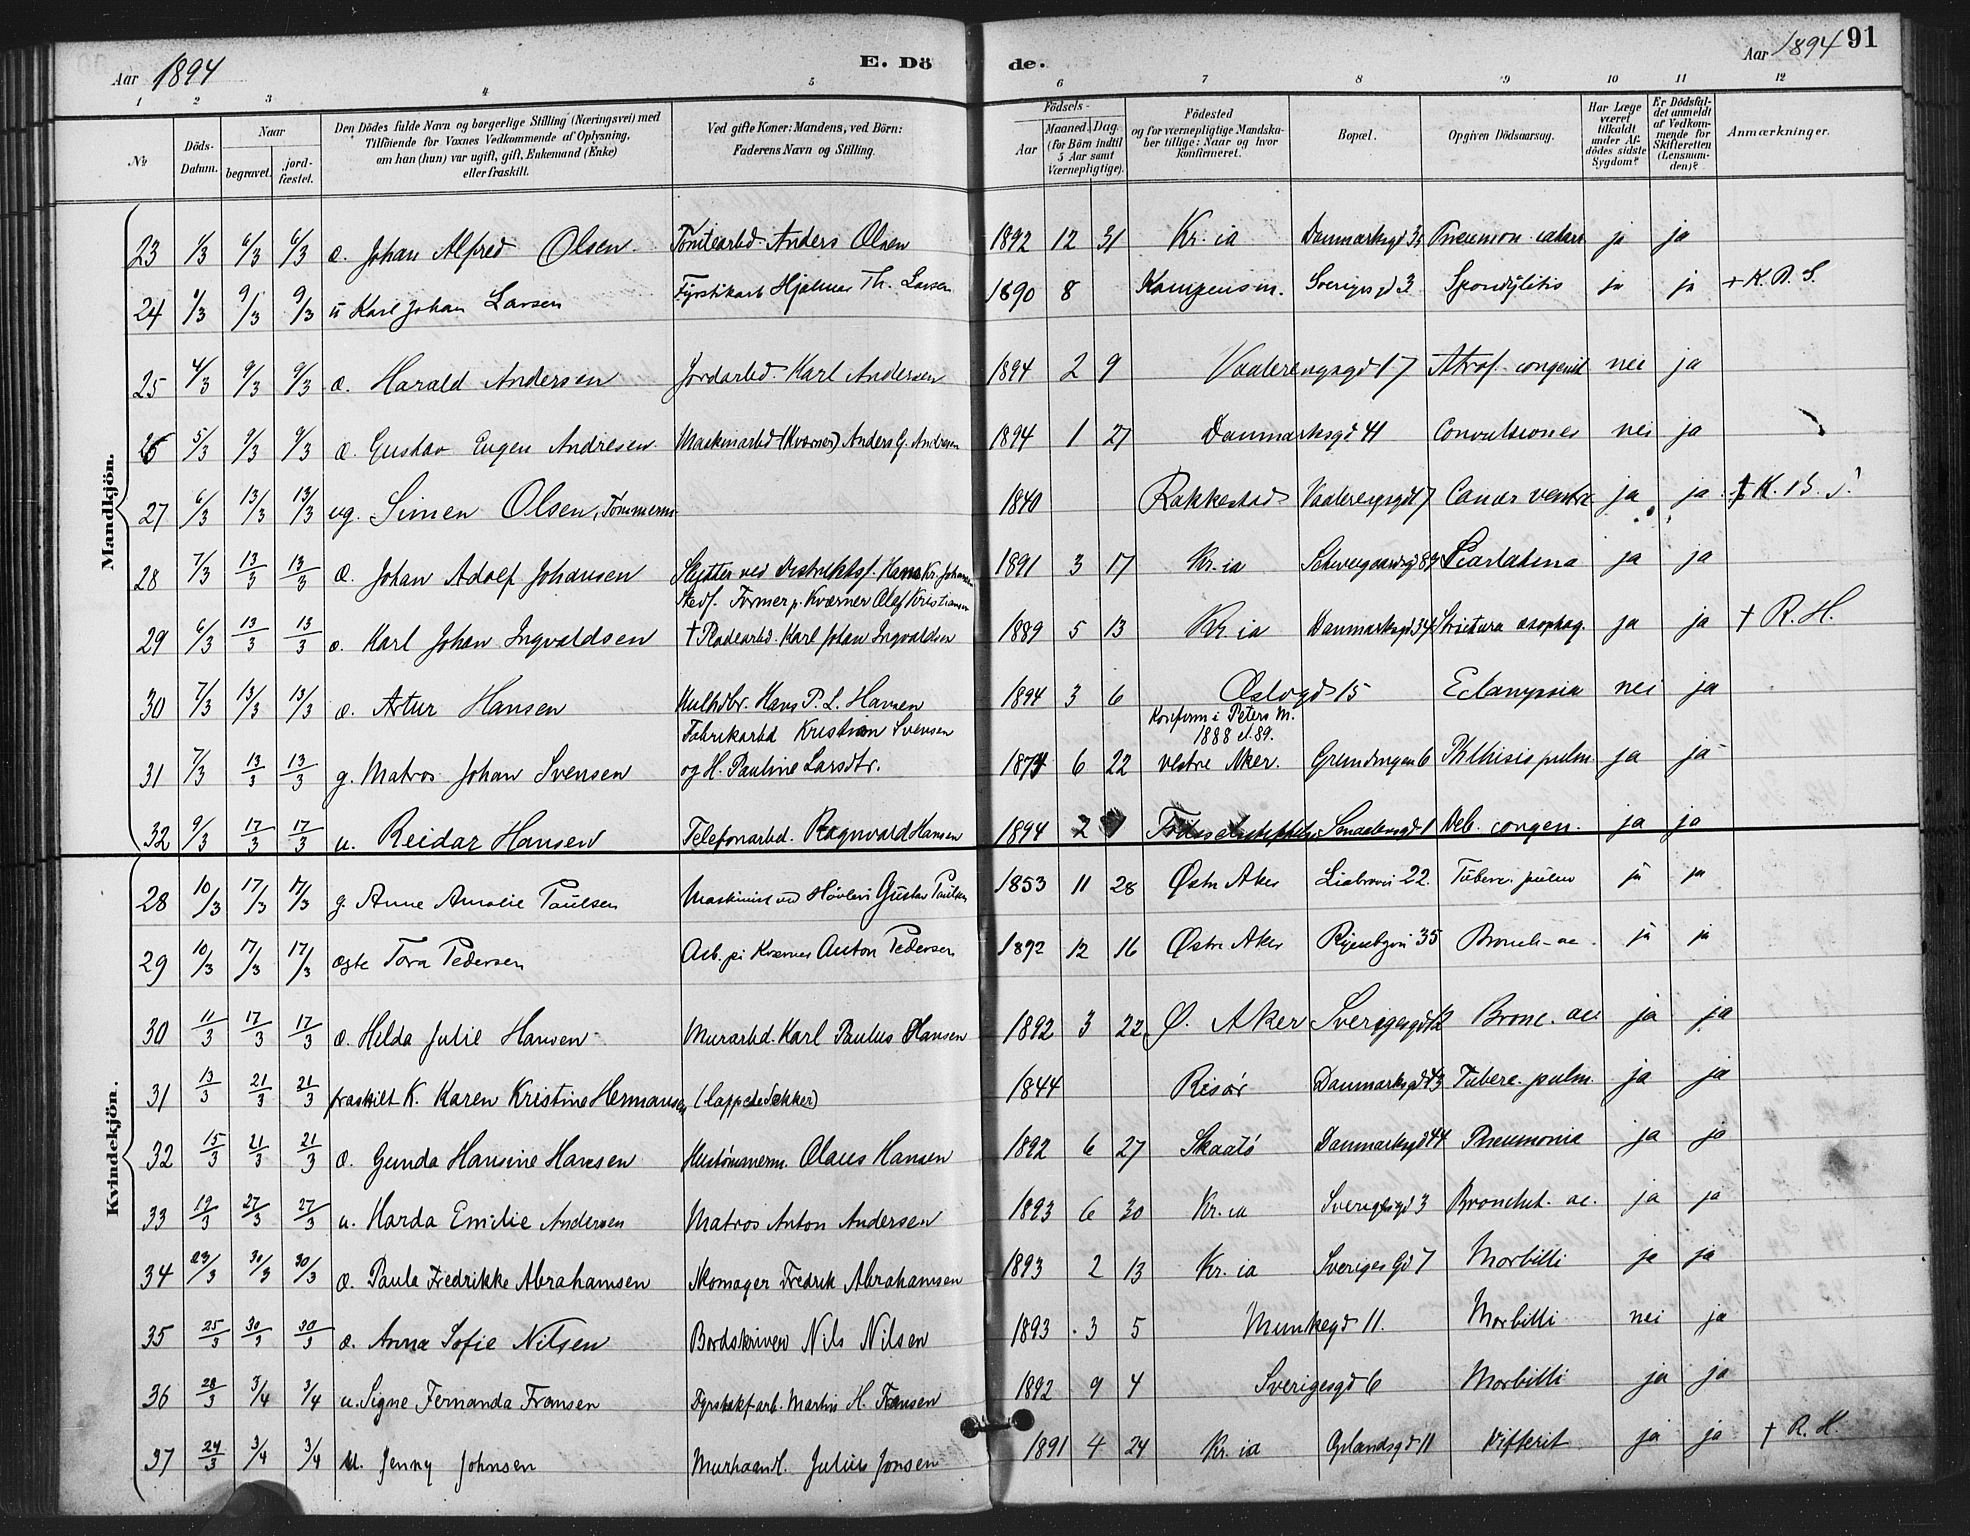 Aar 1894
E. Dö de.
Aar 1894 91
1 2 3 4 5 6 7 8 9 10 11 12
No
Döds-Datum.
Naar
begravet. jord-fæstet.
Den Dödes fulde Navn og borgerlige Stilling (Næringsvei) med Tilföiende for Voxnes Vedkommende af Oplysning, om han (hun) var ugift, gift, Enkemand (Enke) eller fraskilt.
Ved gifte Koner: Mandens, ved Börn: Faderens Navn og Stilling.
Födsels-
Aar Maaned. Dag. (for Börn indtil 5 Aar samt Værnepligtige).
Födested og for værnepligtige Mandskaber tillige: Naar og hvor konfirmeret.
Bopæl.
Opgiven Dödsaarsag.
Har Læge været tilkaldt under Afdödes sidste Sygdom?
Er Dödsfaldet anmeldt af Vedkommende for Skifteretten (Lensmanden)?
Anmærkninger.
Mandkjön.
23 1/3 6/3 6/3 æ. Johan Alfred Olsen Tomtearbd. Anders Olsen 1892 12 31 Kr.ia Danmarksgd 35 Pneumon. catarr ja ja
24 1/3 9/3 9/3 u Karl Johan Larsen Fyrstikarb Hjalmar Th. Larsen 1890 8 Kampens m. Sverigesgd 3 Spondylitis ja ja + K. B. S.
25 4/3 9/3 9/3 æ. Harald Andersen Jordarbd. Karl Andersen 1894 2 9 Vaalerengsgd 17 Atrof. congenit nei ja
26 5/3 9/3 9/3 æ. Gustav Eugen Andresen Maskinarbd (Kværner) Anders G. Andresen 1894 1 27 Danmarksgd 41 Convulsiones nei ja
27 6/3 13/3 13/3 ug. Simen Olsen, Tømmerm 1840 Rakkestad Vaalerengsgd 17 Cancer ventr. ja ja
28 7/3 13/3 13/3 æ. Johan Adolf Johansen Hans Kr. Johansen 1891 3 17 Kr.ia Schweigaardsgd Scarlatina ja ja
Stedf. Former p. Kværner Olaf Kristiansen
29 6/3 13/3 13/3 æ. Karl Johan Ingvaldsen † Pladearbd. Karl Johan Ingvaldsen 1889 5 13 Kr.ia Danmarksgd 34 Strictura øsophag. ja ja † R. H.
30 7/3 13/3 13/3 æ. Artur Hansen Kulhdlr. Hans P. L. Hansen 1894 3 6 Oslogd 15 Eclampsia nei ja
Fabrikarbd Kristian Svensen Konfirm i Peters M. 1888 el. 89.
31 7/3 13/3 13/3 g. Matros Johan Svensen og H. Pauline Larsdtr. 1874 6 22 vestre Aker. Grøndingen 6 Phthisis pulm ja ja
32 9/3 17/3 17/3 u. Reidar Hansen Telefonarbd. Ragnvald Hansen 1894 2 Fødselsstiftelsen Smaalensgd 1 Deb. congen. ja ja
Kvindekjön.
28 10/3 17/3 17/3 g. Anne Amalie Paulsen Maskinist ved Høvleri Gustav Paulsen 1853 11 28 Østre Aker Liabroveien 22. Tuberc. pulm ja ja
29 10/3 17/3 17/3 ægte Tora Pedersen Arb. på Kværner Anton Pedersen 1892 12 16 Østre Aker Ryenbgvei 35 Bronch. ac. ja ja
30 11/3 17/3 17/3 æ. Helda Julie Hansen Murarbd. Karl Paulus Hansen 1892 3 22 Ø. Aker Sverigesgd 12 Bronc. ac ja ja
31 13/3 21/3 21/3 fraskilt K. Karen Kristine Hermansen (lappede Sekker) 1844 Risør Danmarksgd 43 Tuberc. pulm. ja ja
32 15/3 21/3 21/3 æ. Gunda Hansine Hansen Hustømmerm. Olaus Hansen 1892 6 27 Skaatö Danmarksgd 44 Pneumonia ja ja
33 19/3 27/3 27/3 u. Harda Emilie Andersen Matros Anton Andersen 1893 6 30 Kr.ia Sverigesgd 3 Bronchit. ac. ja ja
34 23/3 30/3 30/3 æ. Paula Fredrikke Abrahamsen Skomager Fredrik Abrahamsen 1893 2 13 Kr.ia Sveriges Gd 7 Morbilli ja ja
35 25/3 30/3 30/3 æ. Anna Sofie Nilsen Bordskriver Nils Nilsen 1893 3 5 Munkegd 11. Morbilli nei ja
36 28/3 3/4 3/4 u. Signe Fernanda Fransen Fyrstikf.arb. Martin H. Fransen 1892 9 4 Sverigesgd 6 Morbilli ja ja
37 24/3 3/4 3/4 u. Jenny Johnsen Murhaandl. Julius Jonsen 1891 4 24 Kr.ia Oplandsgd 11 Difterit ja ja † R. H.